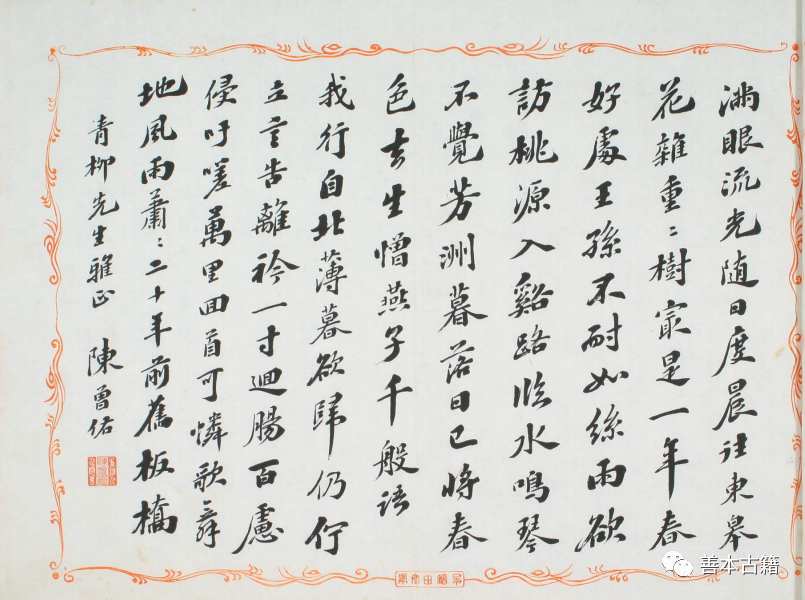 滿眼流光随日度晨往東皋
花雜重〻樹㝡是一年春
好處王孫不耐如絲雨欲
訪桃源入谿路臨水鳴琴
不覺芳洲暮落日已將春
色去生憎燕子千般語
我行自北薄暮欲歸仍佇
立言告離衿一寸迴腸百慮
侵吁嗟萬里回首可憐歌舞
地風雨蕭〻二十年前舊板橋
青柳先生雅正 陳曾佑
善本古籍